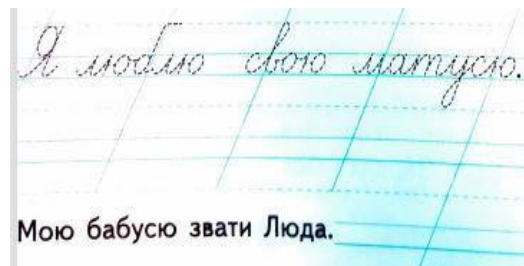 Я люблю свою матусю.
Мою бабусю звати Люда.